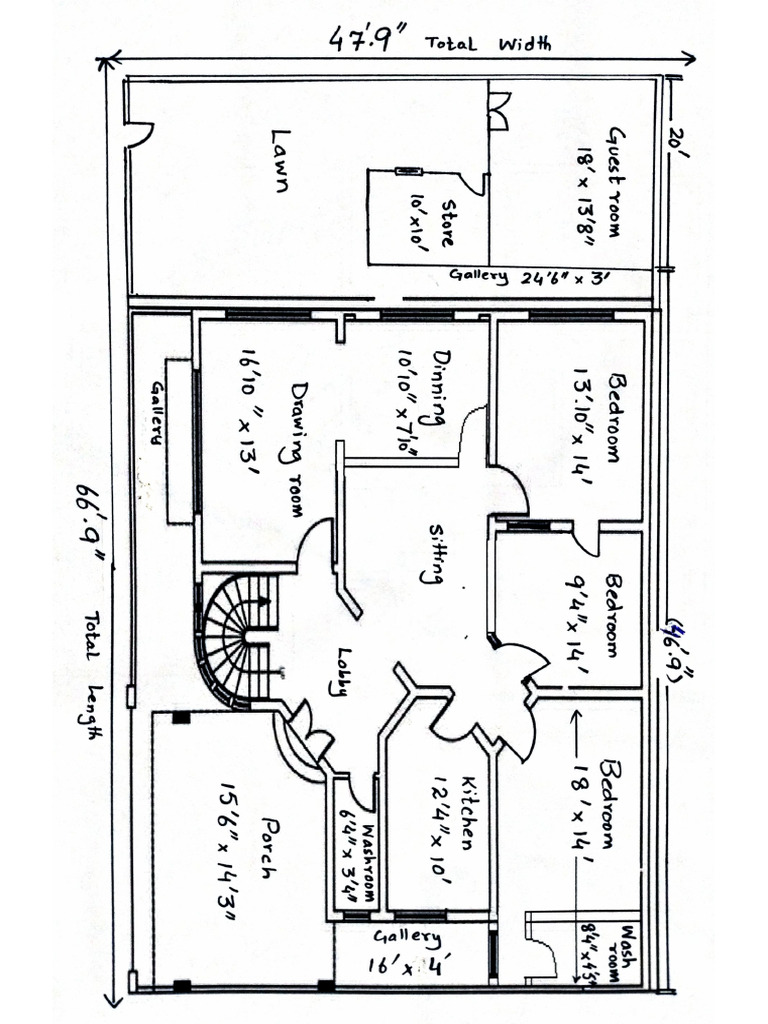 47'.9" Total Width
20'
Guest room
18' x 13'8"
Lawn
Store
10'x10'
Gallery 24'6" x 3'
Bedroom
13'.10" x 14'
Dinning
10'10" x 7'10"
Drawing room
16'10" x 13'
Gallery
Sitting
Bedroom
9'4" x 14'
(46'.9")
66'.9" Total Length
Lobby
Bedroom
18' x 14'
Kitchen
12'4" x 10'
Washroom
6'4" x 3'4"
Porch
15'6" x 14'3"
Gallery
16' x 4'
Wash
room